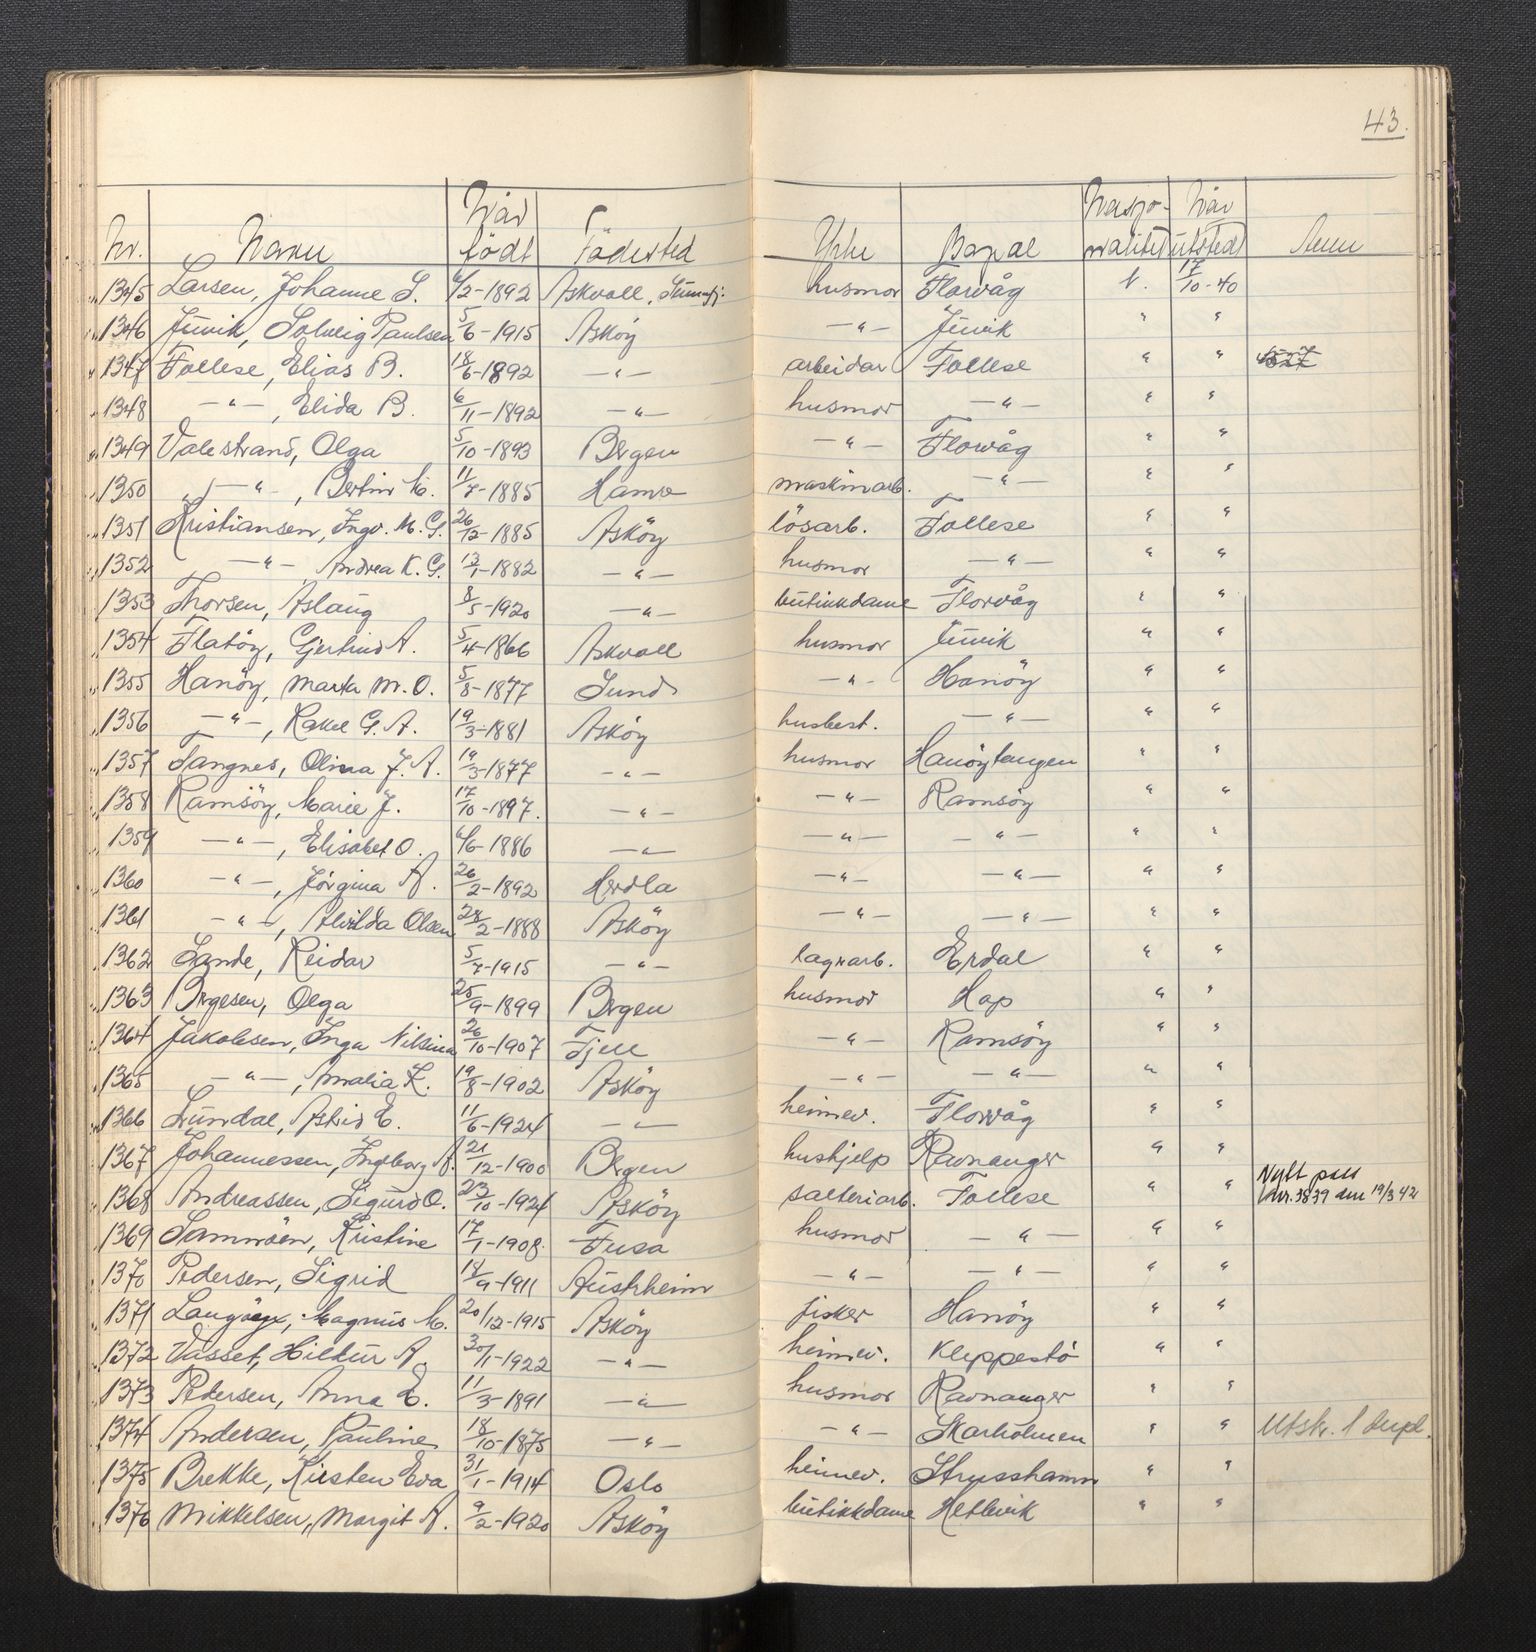 43.
Nr. Namn Når födt Födested Yrke Bopæl Nasjonalitet Når utstedt Anm
1345 Larsen, Johanne S. 6/2-1892 Askvoll, husmor Florvåg N. 17/10-40
1346 Juvik, Solveig Paulsen 5/6-1915 Asköy —"— Juvik " "
1347 Follese, Elias B. 18/6-1892 —"— arbeidar Follese " "
1348 —"—, Elida B. 6/11-1892 —"— husmor —"— " "
1349 Valestrand, Olga 5/10-1893 Bergen —"— Florvåg " "
1350 —"—, Bertin M. 11/7-1885 Hamre maskinarb. —"— " "
1351 Kristiansen, Ingv. M. G. 26/12-1885 Asköy lösarb. Follese " "
1352 —"— Andrea K. G. 13/1-1882 —"— husmor —"— " "
1353 Thorsen, Aslaug 8/5-1920 —"— butikkdame Florvåg " "
1354 Flatöy, Gjertrud A. 5/4-1866 Askvoll husmor Juvik " "
1355 Hanöy, Marta M. O. 5/8-1877 Sund —"— Hanöy " "
1356 —"—, Rakel G. A. 19/3-1881 Asköy husbest. —"— " "
1357 Tangnes, Olina J. A. 19/3-1877 —"— husmor Hanöytangen " "
1358 Ramsöy, Marie J. 17/10-1897. —"— —"— Ramsöy " "
1359 —"—, Elisabet O. 6/6-1886 —"— —"— —"— " "
1360 —"—, Jörgina A. 26/2-1892 Herdla —"— —"— " "
1361 —"—, Alvilda Olsen 28/2-1888 Asköy —"— —"— " "
1362 Lande, Reidar 5/7-1915 —"— lagerarb. Erdal " "
1363 Bergesen, Olga 25/9-1899 Bergen husmor Hop " "
1364 Jakobsen, Inga Nilsina 26/10-1907 Fjell —"— Ramsöy " "
1365 —"—, Amalia K. 19/8-1902 Asköy —"— —"— " "
1366 Lundal, Astrid E. 11/6-1924 —"— heimev. Florvåg " "
1367 Johannessen, Ingborg A. 21/12-1900 Bergen hushjelp Ravnanger " "
1368 Andreassen, Sigurd O. 23/10-1924 Asköy salteriarb. Follese " " Nytt pass nr. 3839 den 19/3 42
1369 Samnöen, Kristine 17/1-1908. Fusa husmor —"— " "
1370 Pedersen, Sigrid 18/9-1911 Austrheim —"— —"— " "
1371 Langöy, Magnus M. 20/12-1915 Asköy fisker Hanöy " "
1372 Vasset, Hildur A. 30/1-1922 —"— heimev. Kleppestö " "
1373 Pedersen, Anna E. 11/3-1891 —"— husmor Ravnanger " "
1374 Andersen, Pauline 18/10-1875 —"— —"— Skarholmen " " Utskr. 1 dupl.
1375 Brekke, Kirsten Eva 31/1-1914 Oslo heimev. Strusshamn " "
1376 Mikkelsen, Margit A. 9/2-1920 Asköy butikkdame Hetlevik " "